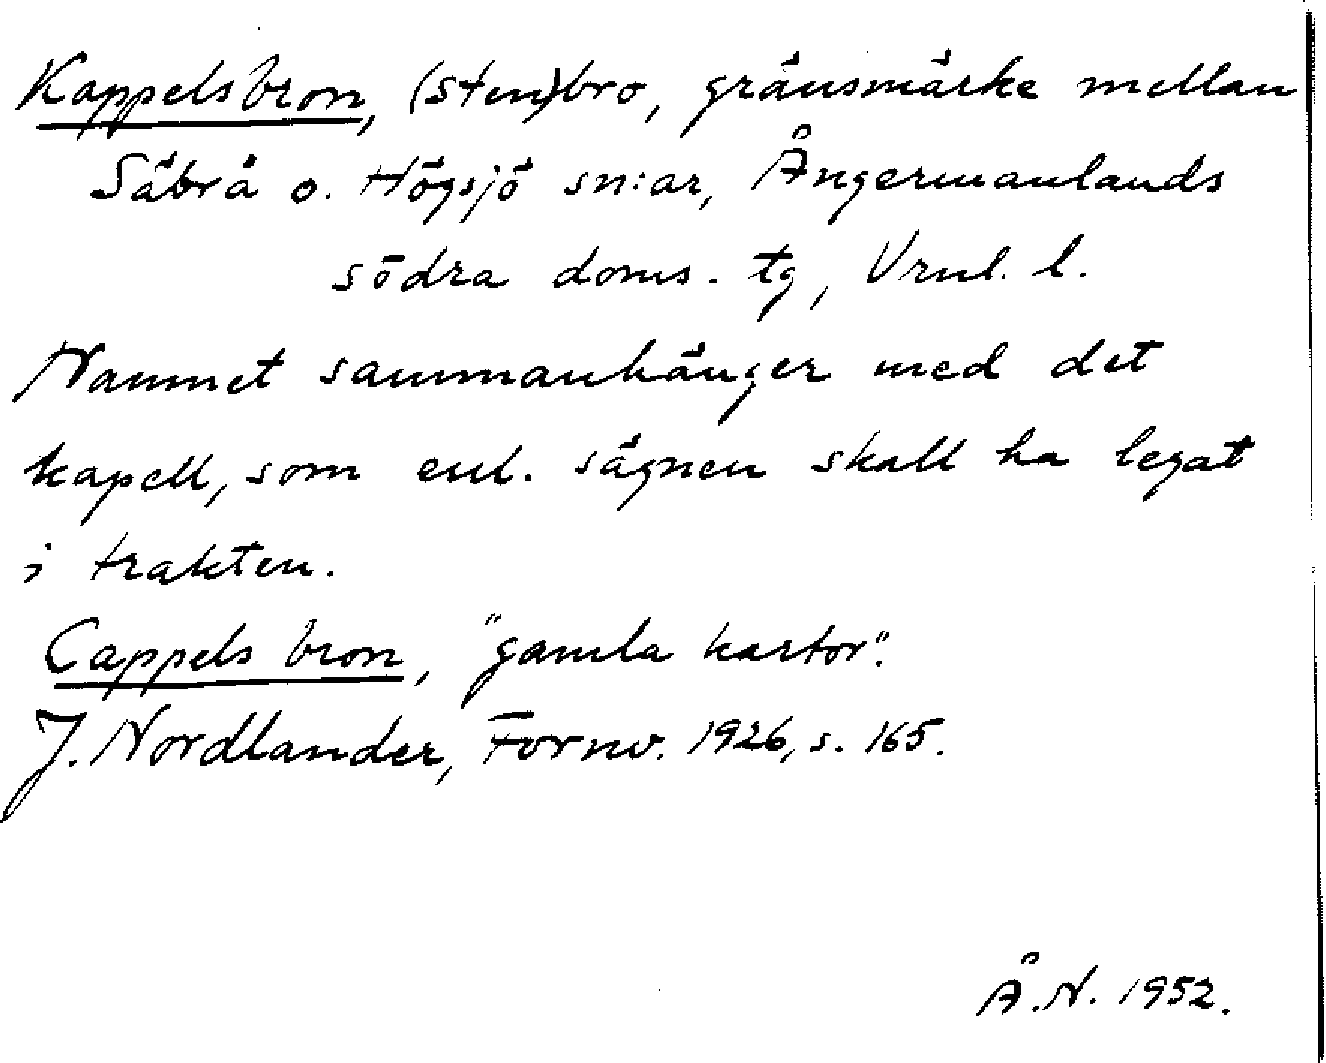 Kappelsbron, (sten)bro, gränsmärke mellan
Säbrå o. Högsjö sn:ar, Ångermanlands
södra doms. tg, Vrnl. l.
Namnet sammanhänger med det
kapell, som enl. sägnen skall ha legat
i trakten.
Cappels bron, "gamla kartor".
J. Nordlander, Fornv. 1926, s. 165.
Å.N. 1952.